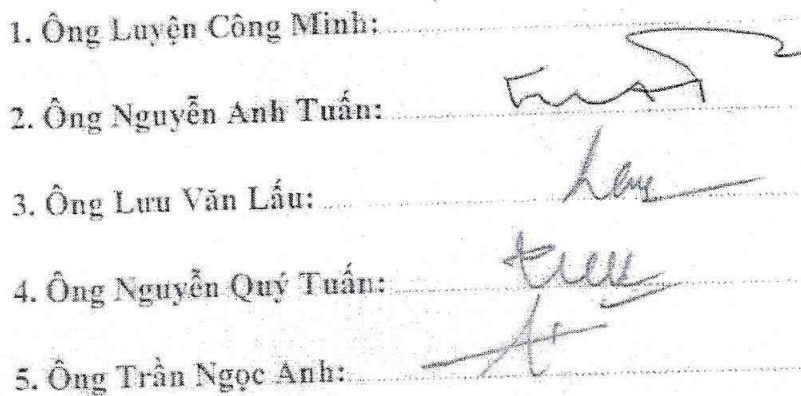 1. Ông Luyện Công Minh:
2. Ông Nguyễn Anh Tuấn:
3. Ông Lưu Văn Lấu:
4. Ông Nguyễn Quý Tuấn:
5. Ông Trần Ngọc Anh: